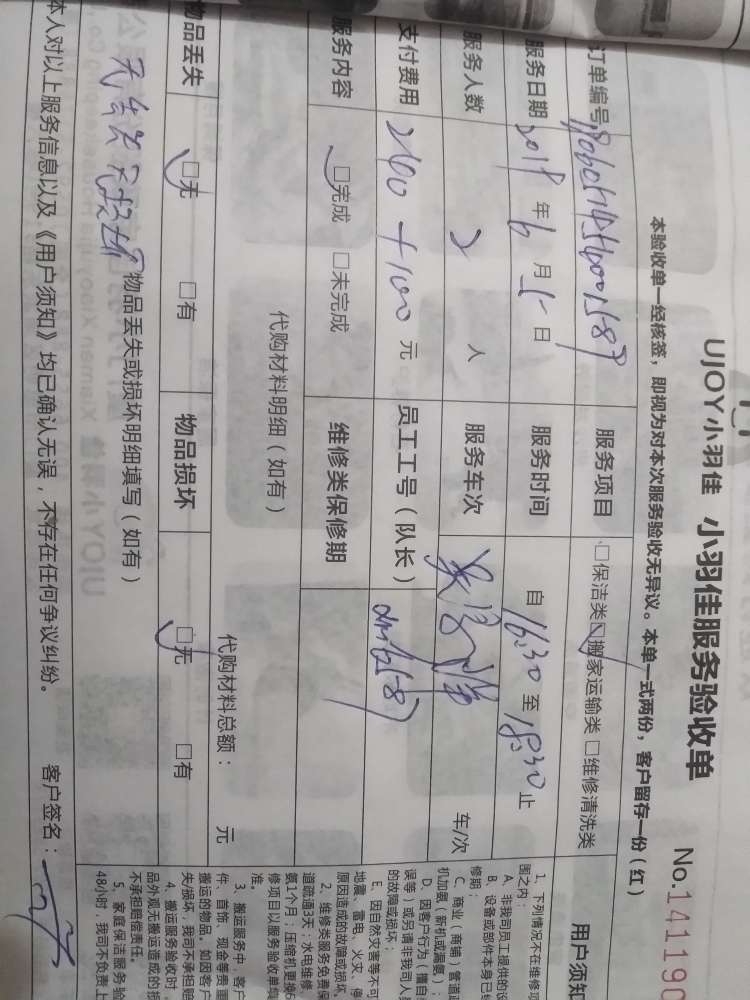 UJOY小羽佳 小羽佳服务验收单 No.141190
本验收单一经核签，即视为对本次服务验收无异议。本单一式两份，客户留存一份（红）
订单编号 服务项目 □保洁类 ☑搬家运输类 □维修清洗类
服务日期 2018 年 6 月 5 日 服务时间 自 16:30 至 18:30 止
服务人数 2 人 服务车次 车/次
支付费用 2600 +100 元 员工工号（队长）
服务内容 □完成 □未完成 维修类保修期
代购材料明细（如有） 代购材料总额： 元
物品丢失 □无 □有 物品损坏 □无 □有
物品丢失或损坏明细填写（如有）
本人对以上服务信息以及《用户须知》均已确认无误，不存在任何争议纠纷。 客户签名：
用户须知
1、下列情况不在维修项
围之内：
A、非我司员工提供的设
B、设备或部件本身已
修期；
C、商业（商铺）管道
机加氨（新机或漏氨）；
D、因客户行为（擅自
误等）或另请非我司人
的故障或损坏；
E、因自然灾害等不可
地震、雷电、火灾、停
原因造成的故障或损坏
2、维修类服务免费保
道疏通3天；水电维修
氨1个月；压缩机更换6
修项目以服务验收单
准。
3、搬运服务中，客户
件、首饰、现金等贵重
搬运的物品。如因客户
失/损坏，我司不承担赔
4、搬运服务验收时，
品外观无搬运造成的损
不承担赔偿责任。
5、家庭保洁服务验
48小时，我司不负责上